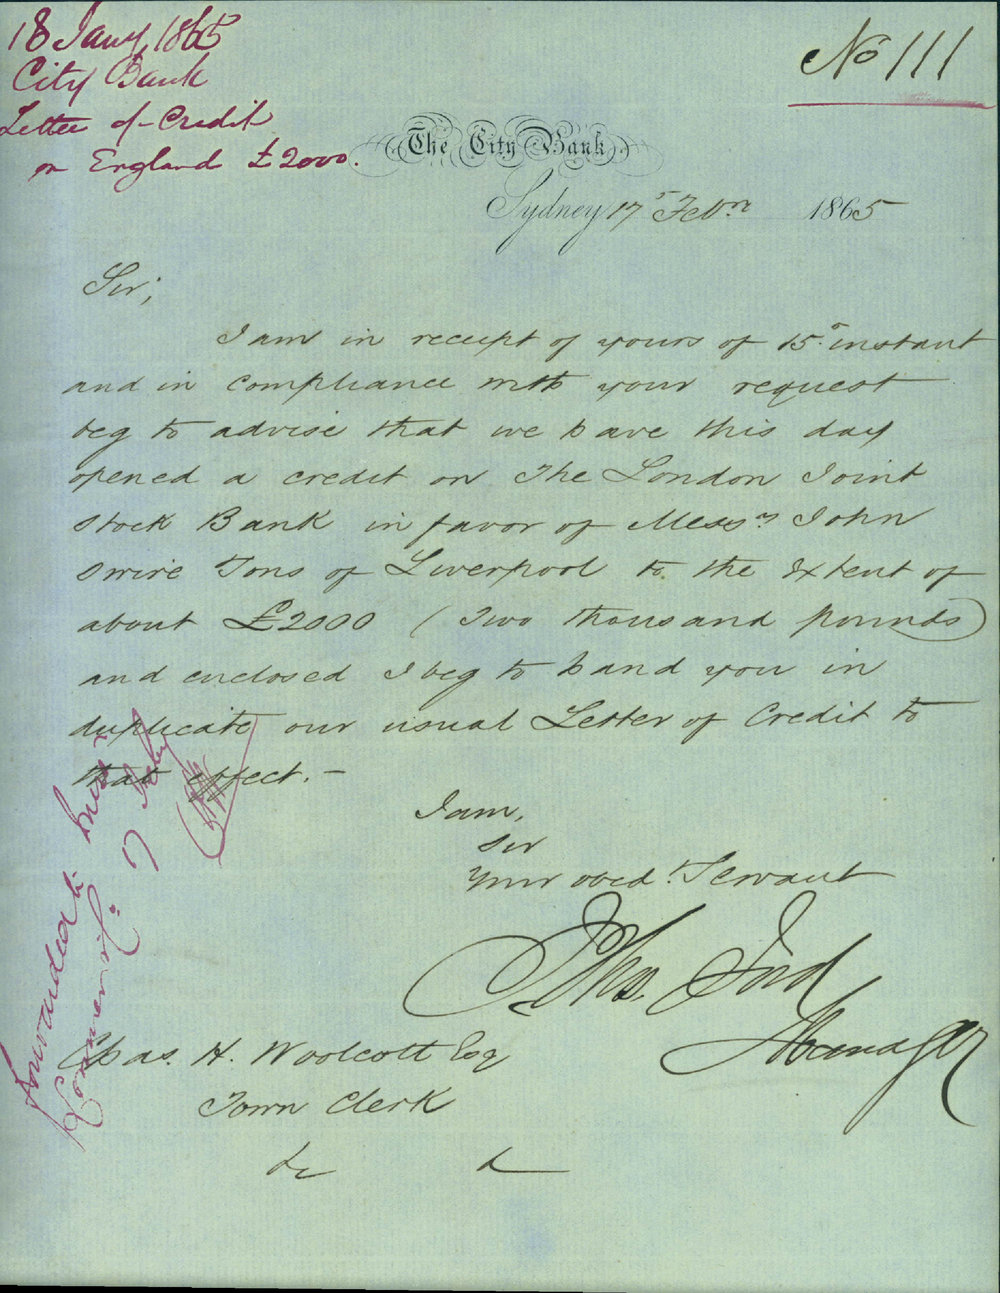 18 Jany 1865
City Bank
Letter of Credit
on England £2000.
No 111
The City Bank
Sydney 17 Febry 1865
Sir,
I am in receipt of yours of 15th instant
and in compliance with your request
beg to advise that we have this day
opened a credit on The London Joint
Stock Bank in favor of Messrs John
Swire Sons of Liverpool to the extent of
about £2000 (Two thousand pounds)
and enclosed I beg to hand you in
duplicate our usual Letter of Credit to
that effect. -
I am,
Sir
Your obed. Servant
Thos. Ford
Manager
Chas. H. Woolcott Esq
Town Clerk
&c &c
forwarded to